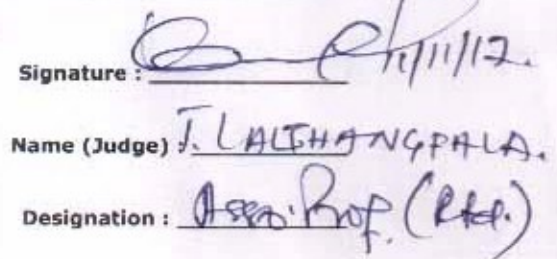 Signature : 11/11/17.
Name (Judge) : J. LALTHANGPALA.
Designation : Asso. Prof. (Rtd.)